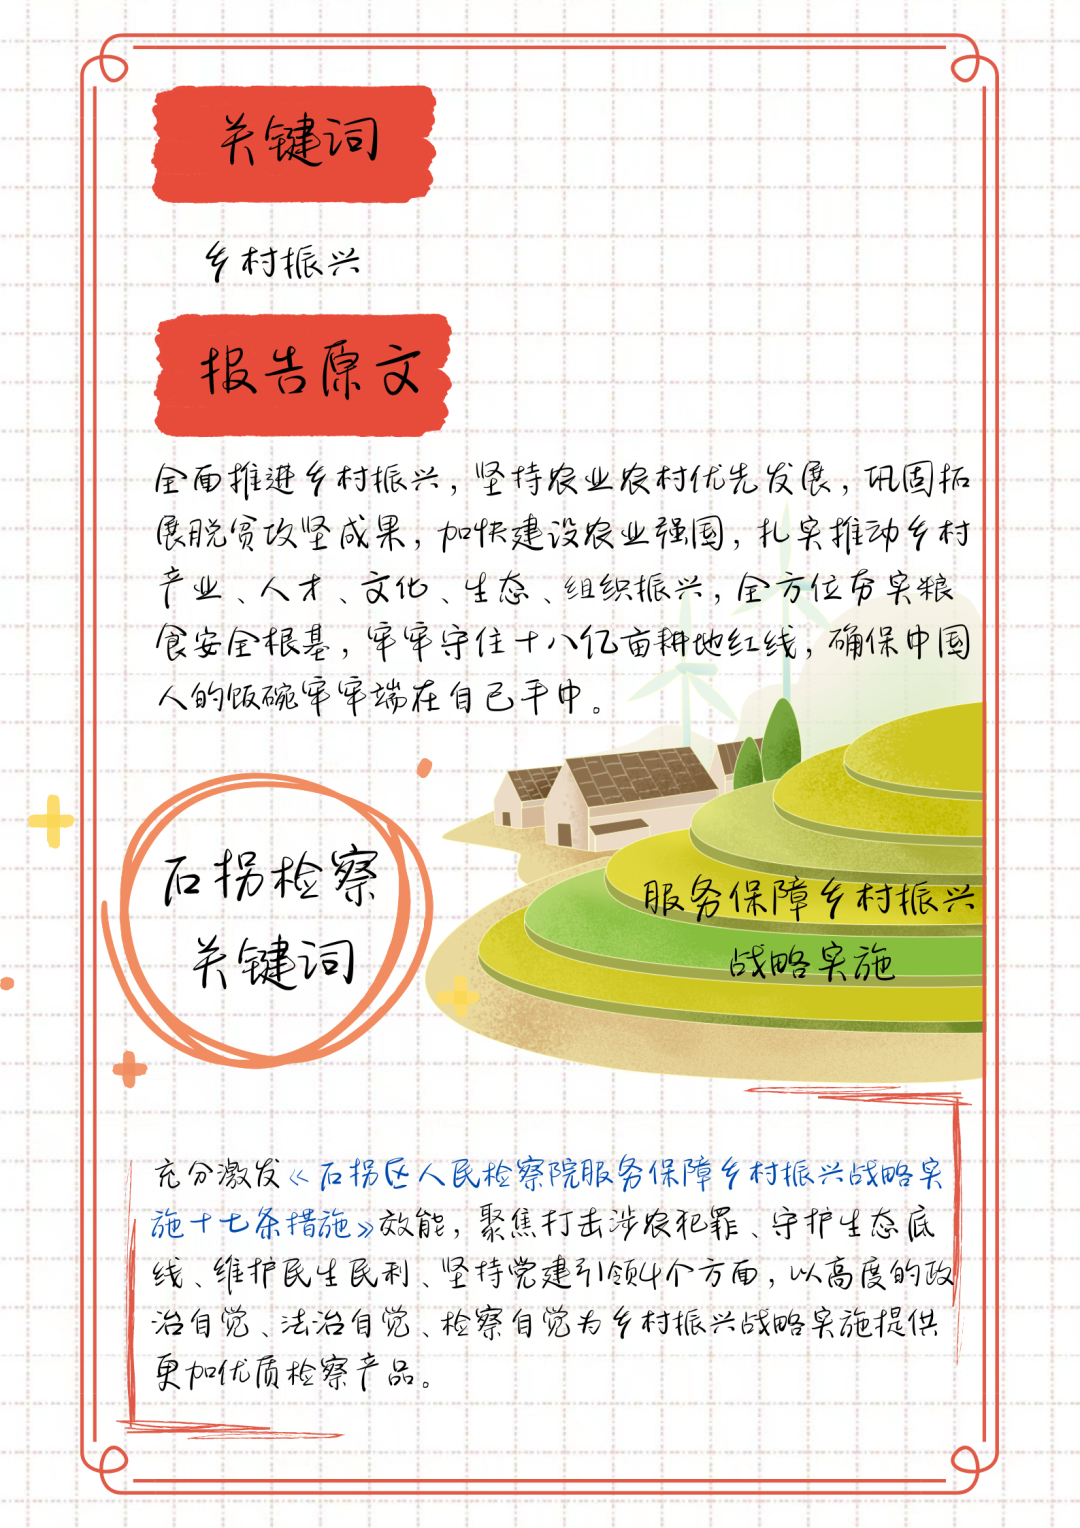 关键词
乡村振兴
报告原文
全面推进乡村振兴，坚持农业农村优先发展，巩固拓
展脱贫攻坚成果，加快建设农业强国，扎实推动乡村
产业、人才、文化、生态、组织振兴，全方位夯实粮
食安全根基，牢牢守住十八亿亩耕地红线，确保中国
人的饭碗牢牢端在自己手中。
石拐检察
关键词
服务保障乡村振兴
战略实施
充分激发《石拐区人民检察院服务保障乡村振兴战略实
施十七条措施》效能，聚焦打击涉农犯罪、守护生态底
线、维护民生民利、坚持党建引领4个方面，以高度的政
治自觉、法治自觉、检察自觉为乡村振兴战略实施提供
更加优质检察产品。